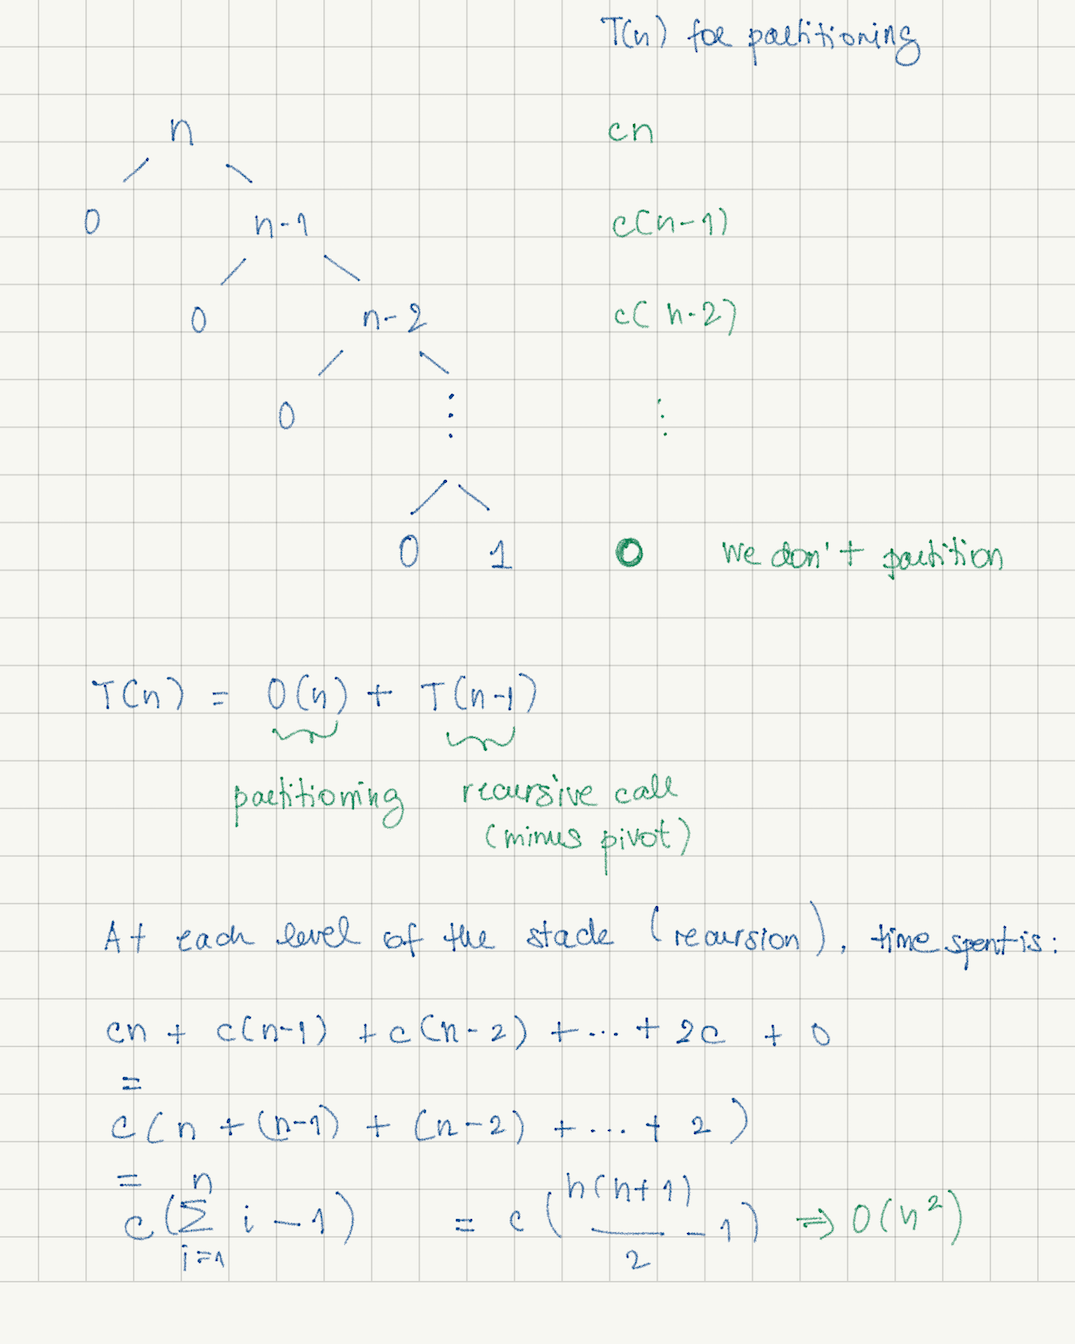 T(n) for partitioning
n cn
0 n-1 c(n-1)
0 n-2 c(n-2)
0 ⋮ ⋮
0 1 0 We don't partition
T(n) = O(n) + T(n-1)
partitioning recursive call
(minus pivot)
At each level of the stack (recursion), time spent is:
cn + c(n-1) + c(n-2) + ... + 2c + 0
=
c(n + (n-1) + (n-2) + ... + 2)
=
c(∑_{i=1}^{n} i - 1) = c(n(n+1)/2 - 1) ⇒ O(n²)